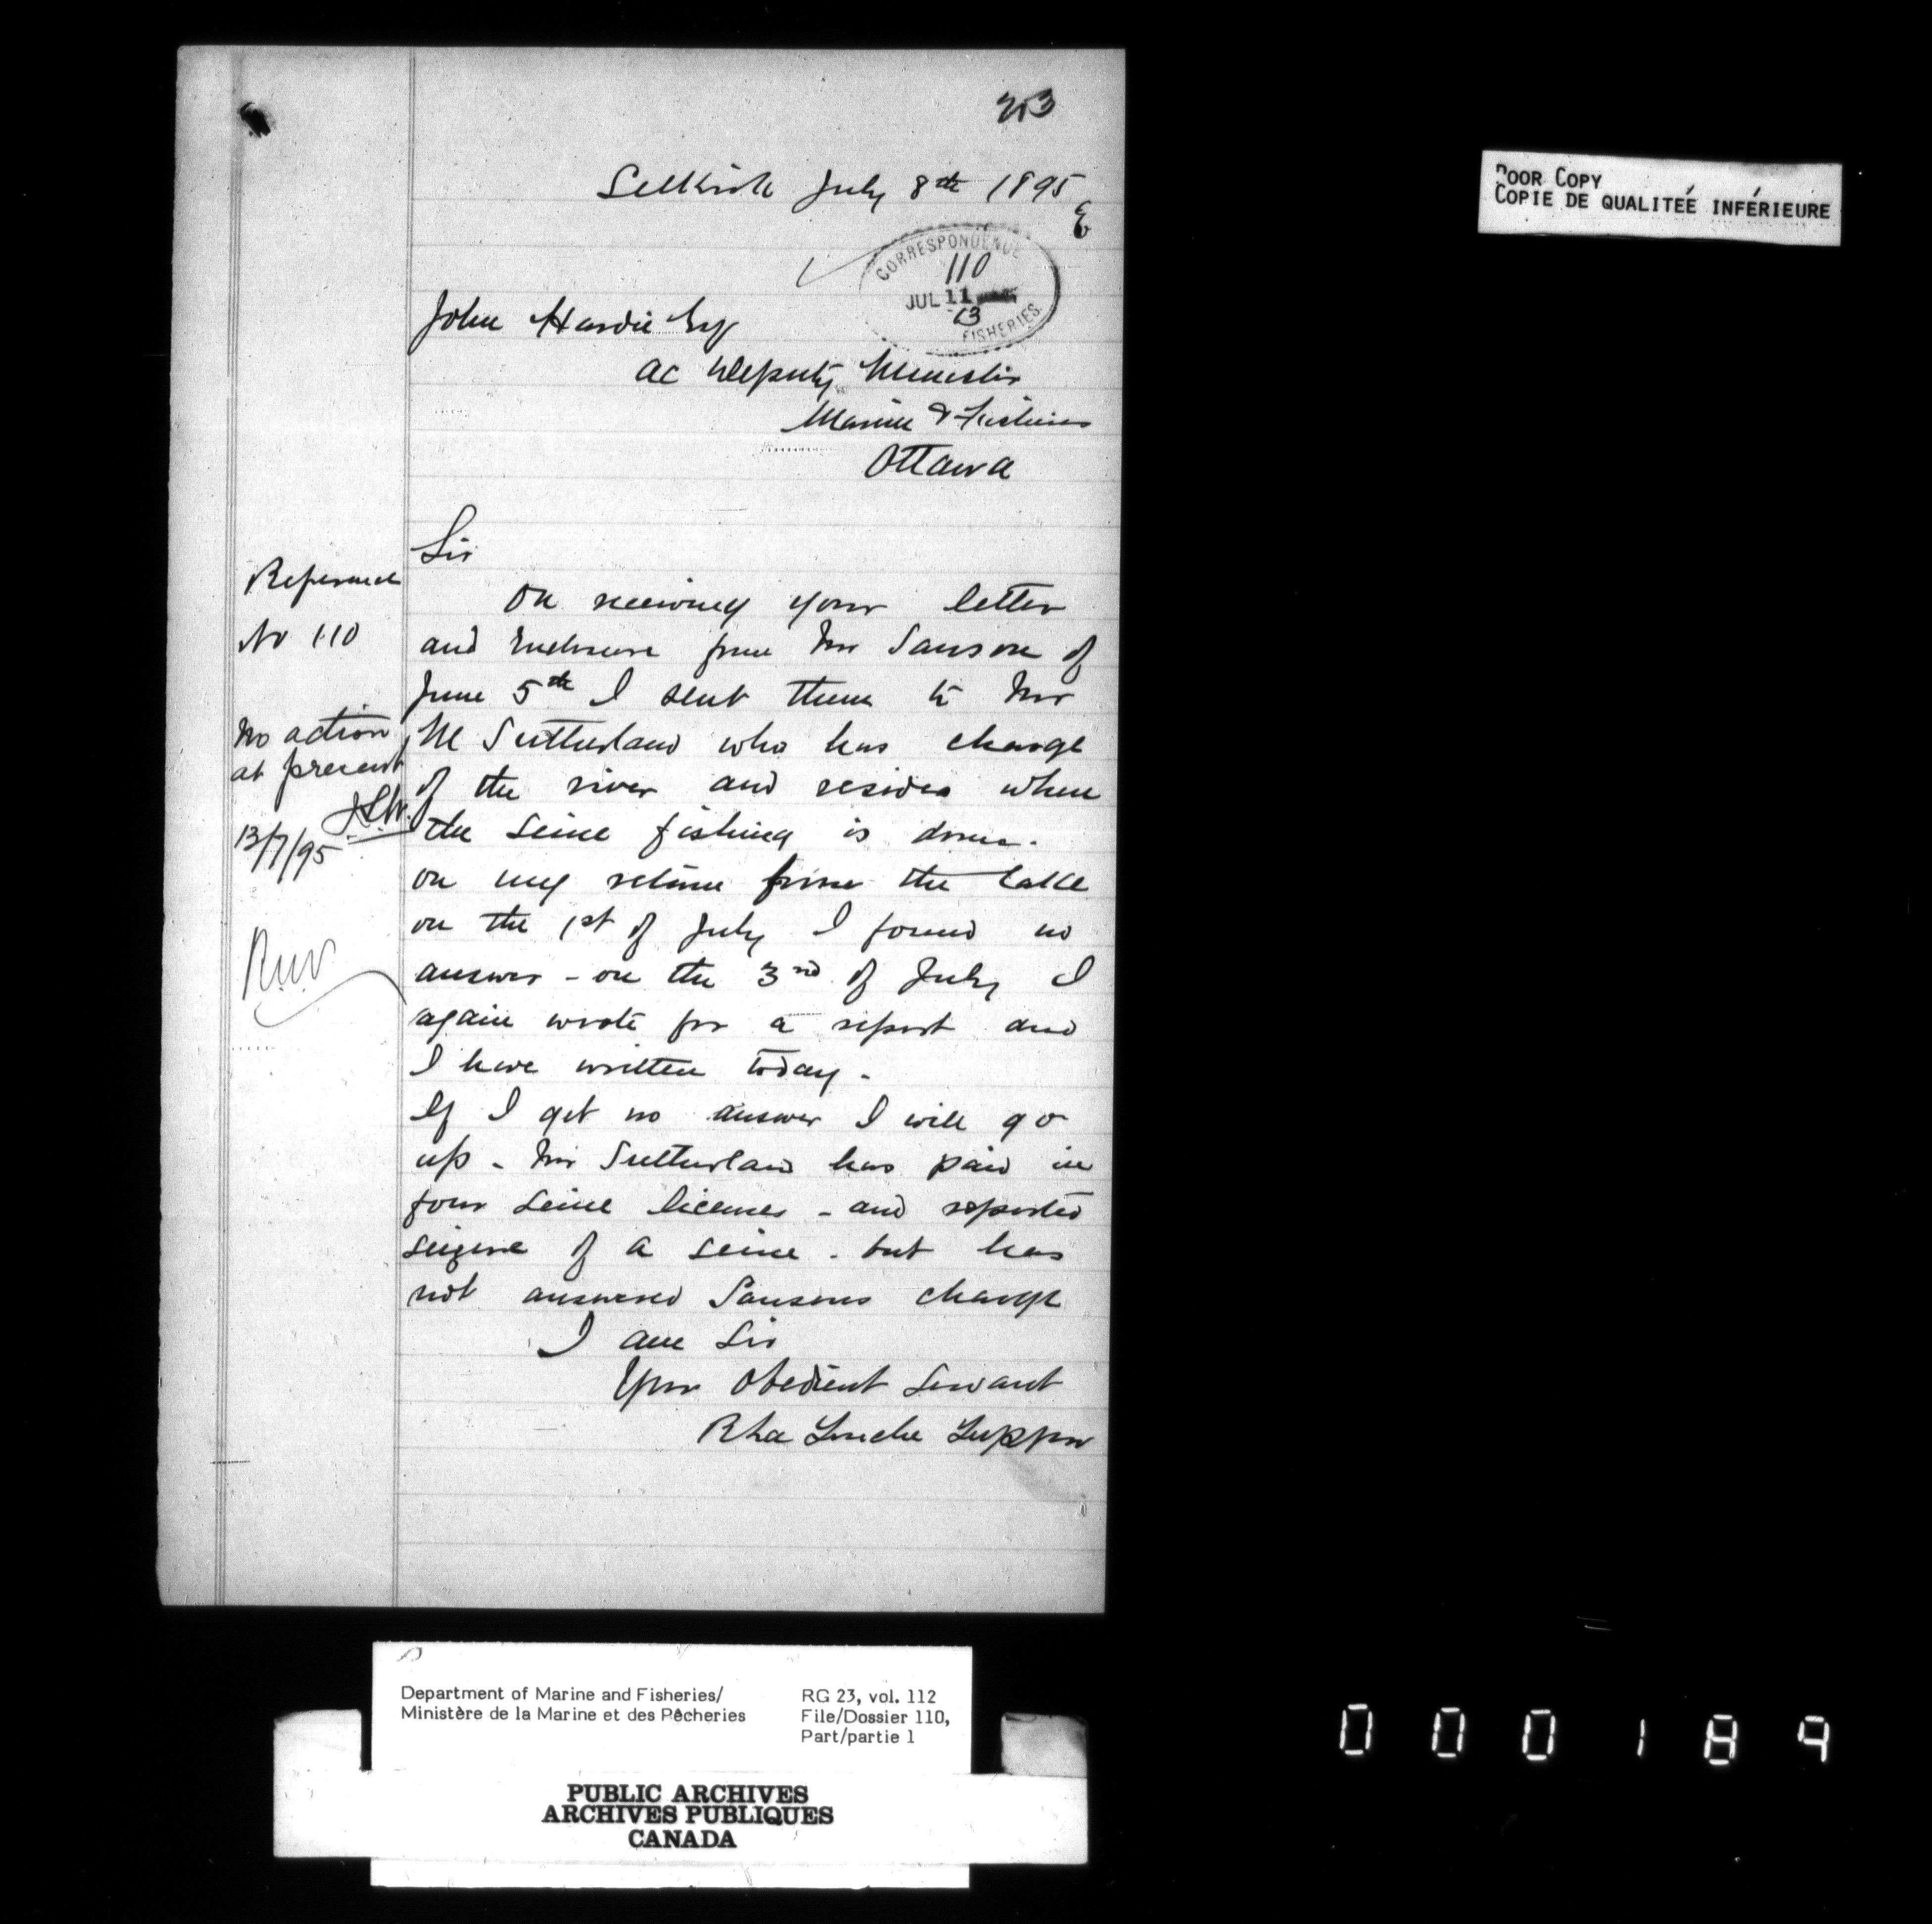 213
Selkirk July 8th 1895
CORRESPONDENCE
110
JUL 11
13
FISHERIES
John Hardie Esq
ac Deputy Minister
Marine & Fisheries
Ottawa
Sir
Reference
No 110
On receiving your letter
and Enclosure from Mr Sanson of
June 5th I sent them to Mr
M Sutherland who has charge
of the river and resides where
the Seine fishing is done.
No action
at present
13/7/95
on my return from the Lake
on the 1st of July I found no
answer - on the 3rd of July I
again wrote for a report and
I have written today -
If I get no answer I will go
up - Mr Sutherland has paid in
four Seine licenses - and reported
seizure of a seine - but has
not answered Sansons charge
I am Sir
Your Obedient Servant
Tupper
POOR COPY
COPIE DE QUALITÉE INFÉRIEURE
Department of Marine and Fisheries/
Ministère de la Marine et des Pêcheries
RG 23, vol. 112
File/Dossier 110,
Part/partie 1
PUBLIC ARCHIVES
ARCHIVES PUBLIQUES
CANADA
000189